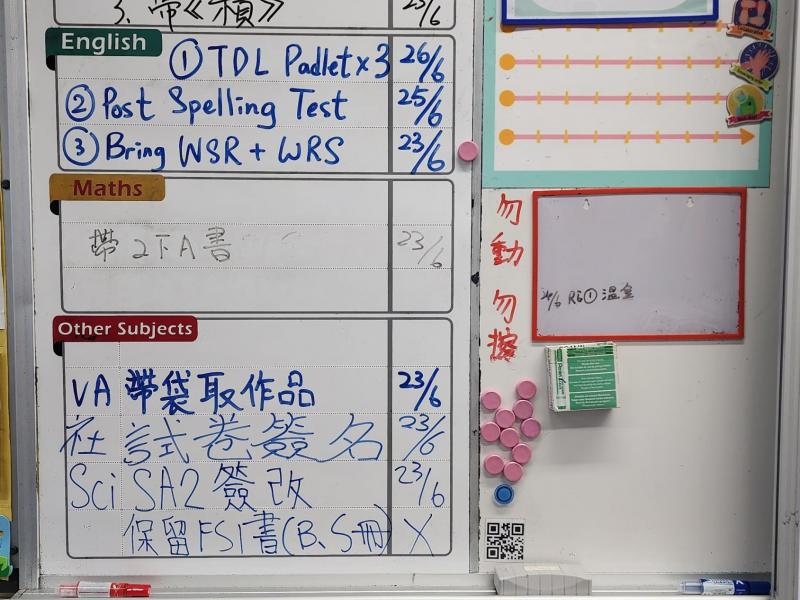 3. 帶《積》 23/6
English
① TDL Padlet x 3 26/6
② Post Spelling Test 25/6
③ Bring WSR + WRS 23/6
Maths
帶 2下A書 23/6
Other Subjects
VA 帶袋取作品 23/6
社 試卷簽名 23/6
Sci SA2 簽改 23/6
保留FS1書(B、S冊) X
勿動 勿擦
①溫室